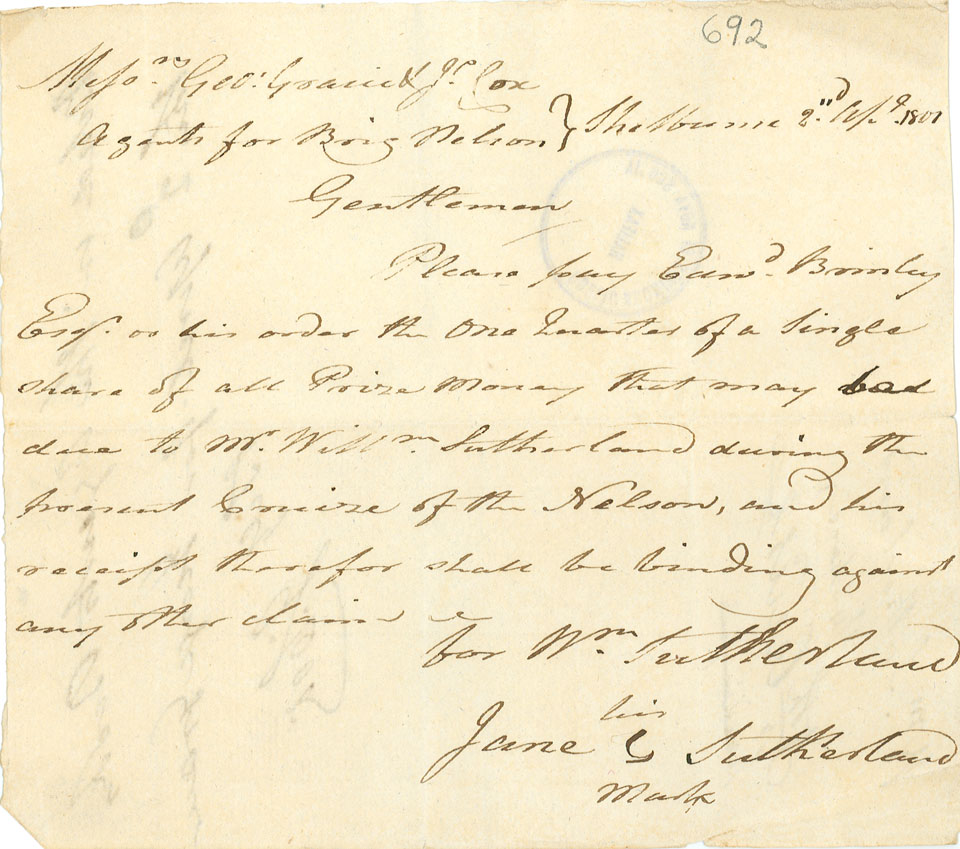 692
Messrs Geo: Gracie & Js Cox
Agents for Brig Nelson } Shelburne 2nd Apl 1801
Gentlemen
Please pay Edwd Brinley
Esqr or his order the One Quarter of a Single
share of all Prize Money that may be
due to Mr Willm Sutherland during the
present Cruize of the Nelson, and his
receipt therefor shall be binding against
any other claim
for Wm Sutherland
his
Jane Sutherland
Mark